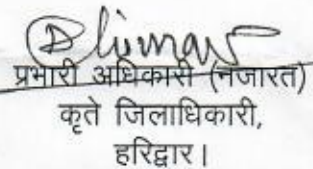 प्रभारी अधिकारी (नजारत)
कृते जिलाधिकारी,
हरिद्वार।